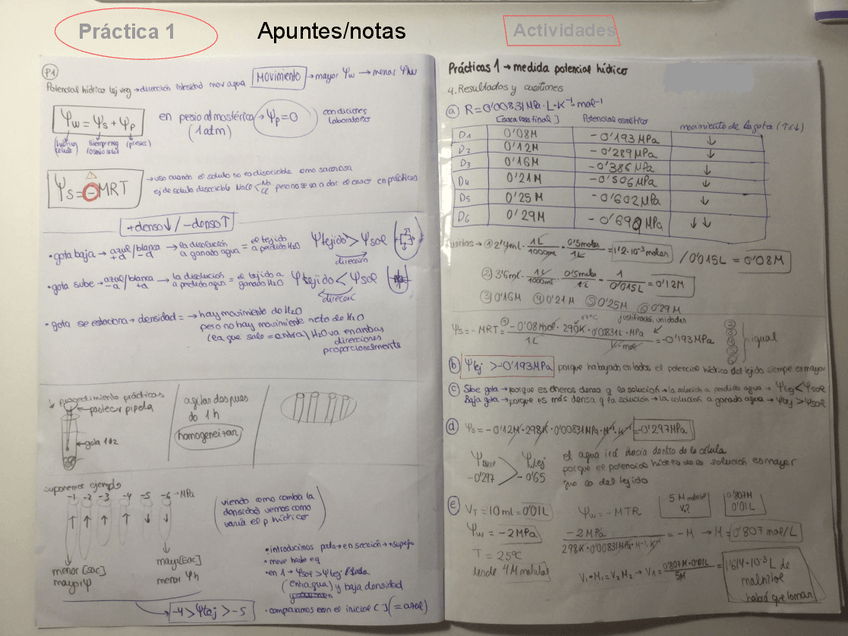 Práctica 1
Apuntes/notas
Actividades
P1
Potencial hídrico tej veg → dirección intensidad mov agua MOVIMIENTO → mayor Ψw → menor Ψw
Ψw = Ψs + Ψp
en presión atmosférica → Ψp = 0
(1 atm)
condiciones
laboratorio
(presión)
Ψs = -MRT
→ uso cuando el soluto no es disociable como sacarosa
ej de soluto disociable NaCl pero no se va a dar el caso en prácticas
+denso↓ / -denso↑
• gota baja → azul/blanca → la disolución = el tejido Ψtejido > Ψsol
+d -d a ganado agua a perdido H2O
dirección
• gota sube → azul/blanca → la disolución = el tejido a Ψtejido < Ψsol
-d +d a perdido agua ganado H2O
• gota se estaciona → densidad = → hay movimiento de H2O
pero no hay movimiento neto de H2O
(la que sale = entra) H2O va en ambas
direcciones
proporcionalmente
procedimiento prácticas
gota
agitar después
de 1 h
homogeneizar
suponemos ejemplo
-1 -2 -3 -4 -5 -6 → MPa
↑ ↑ ↑ ↑ ↓ ↓
viendo como cambia la
densidad vemos como
varía el p hídrico
menor [sac]
mayor Ψ
mayor [sac]
menor Ψh
-4 > Ψtej > -5
• introducimos
• en 1 → Ψsol > Ψtej
(entra agua) y baja densidad
• comparamos con el inicial C ] (= azul)
Prácticas 1 → medida potencial hídrico
4. Resultados y cuestiones
a R = 0'00831 MPa · L · K⁻¹ · mol⁻¹
[Conc sac final] Potencial osmótico movimiento de la gota (↑ ó ↓)
D1 0'08M -0'193 MPa ↓
D2 0'12M -0'289 MPa ↓
D3 0'16M -0'386 MPa ↓
D4 0'21M -0'506 MPa ↓
D5 0'25M -0'602 MPa ↓
D6 0'29M -0'699 MPa ↓↓
① 2'4ml · 1L/1000ml · 0'5moles/1L = 1'2·10⁻³ moles / 0'015L = 0'08M
② 3'6ml · 1L/1000ml · 0'5moles/1L · 1/0'015L = 0'12M
③ 0'16M ④ 0'21M ⑤ 0'25M ⑥ 0'29M
Ψs = -MRT = -0'08mol · 290K · 0'00831L · MPa = -0'193MPa
1L K·mol
igual
b Ψtej > -0'193MPa porque ha bajado en todos el potencial hídrico del tejido siempre es mayor
c Sube gota → porque es menos densa q la solución → la solución a perdido agua → Ψtej < Ψsol
Baja gota → porque es más densa q la solución → la solución a ganado agua → Ψtej > Ψsol
d Ψs = -0'12M · 298K · 0'00831MPa · M⁻¹ · K⁻¹ -0'297MPa
Ψsol > Ψtej
-0'297 -0'65
el agua irá hacia dentro de la célula
porque el potencial hídrico de la solución es mayor
que el del tejido
e VT = 10ml = 0'01L Ψw = -MTR
5M manitol
V?
0'807M
0'01L
Ψw = -2MPa
-2MPa = -M → M = 0'807 mol/L
298K · 0'00831
T = 25ºC
V1 · M1 = V2 M2 → V1 = 0'807M · 0'01L = 1'614·10⁻³ L de
5M manitol
habrá que tomar